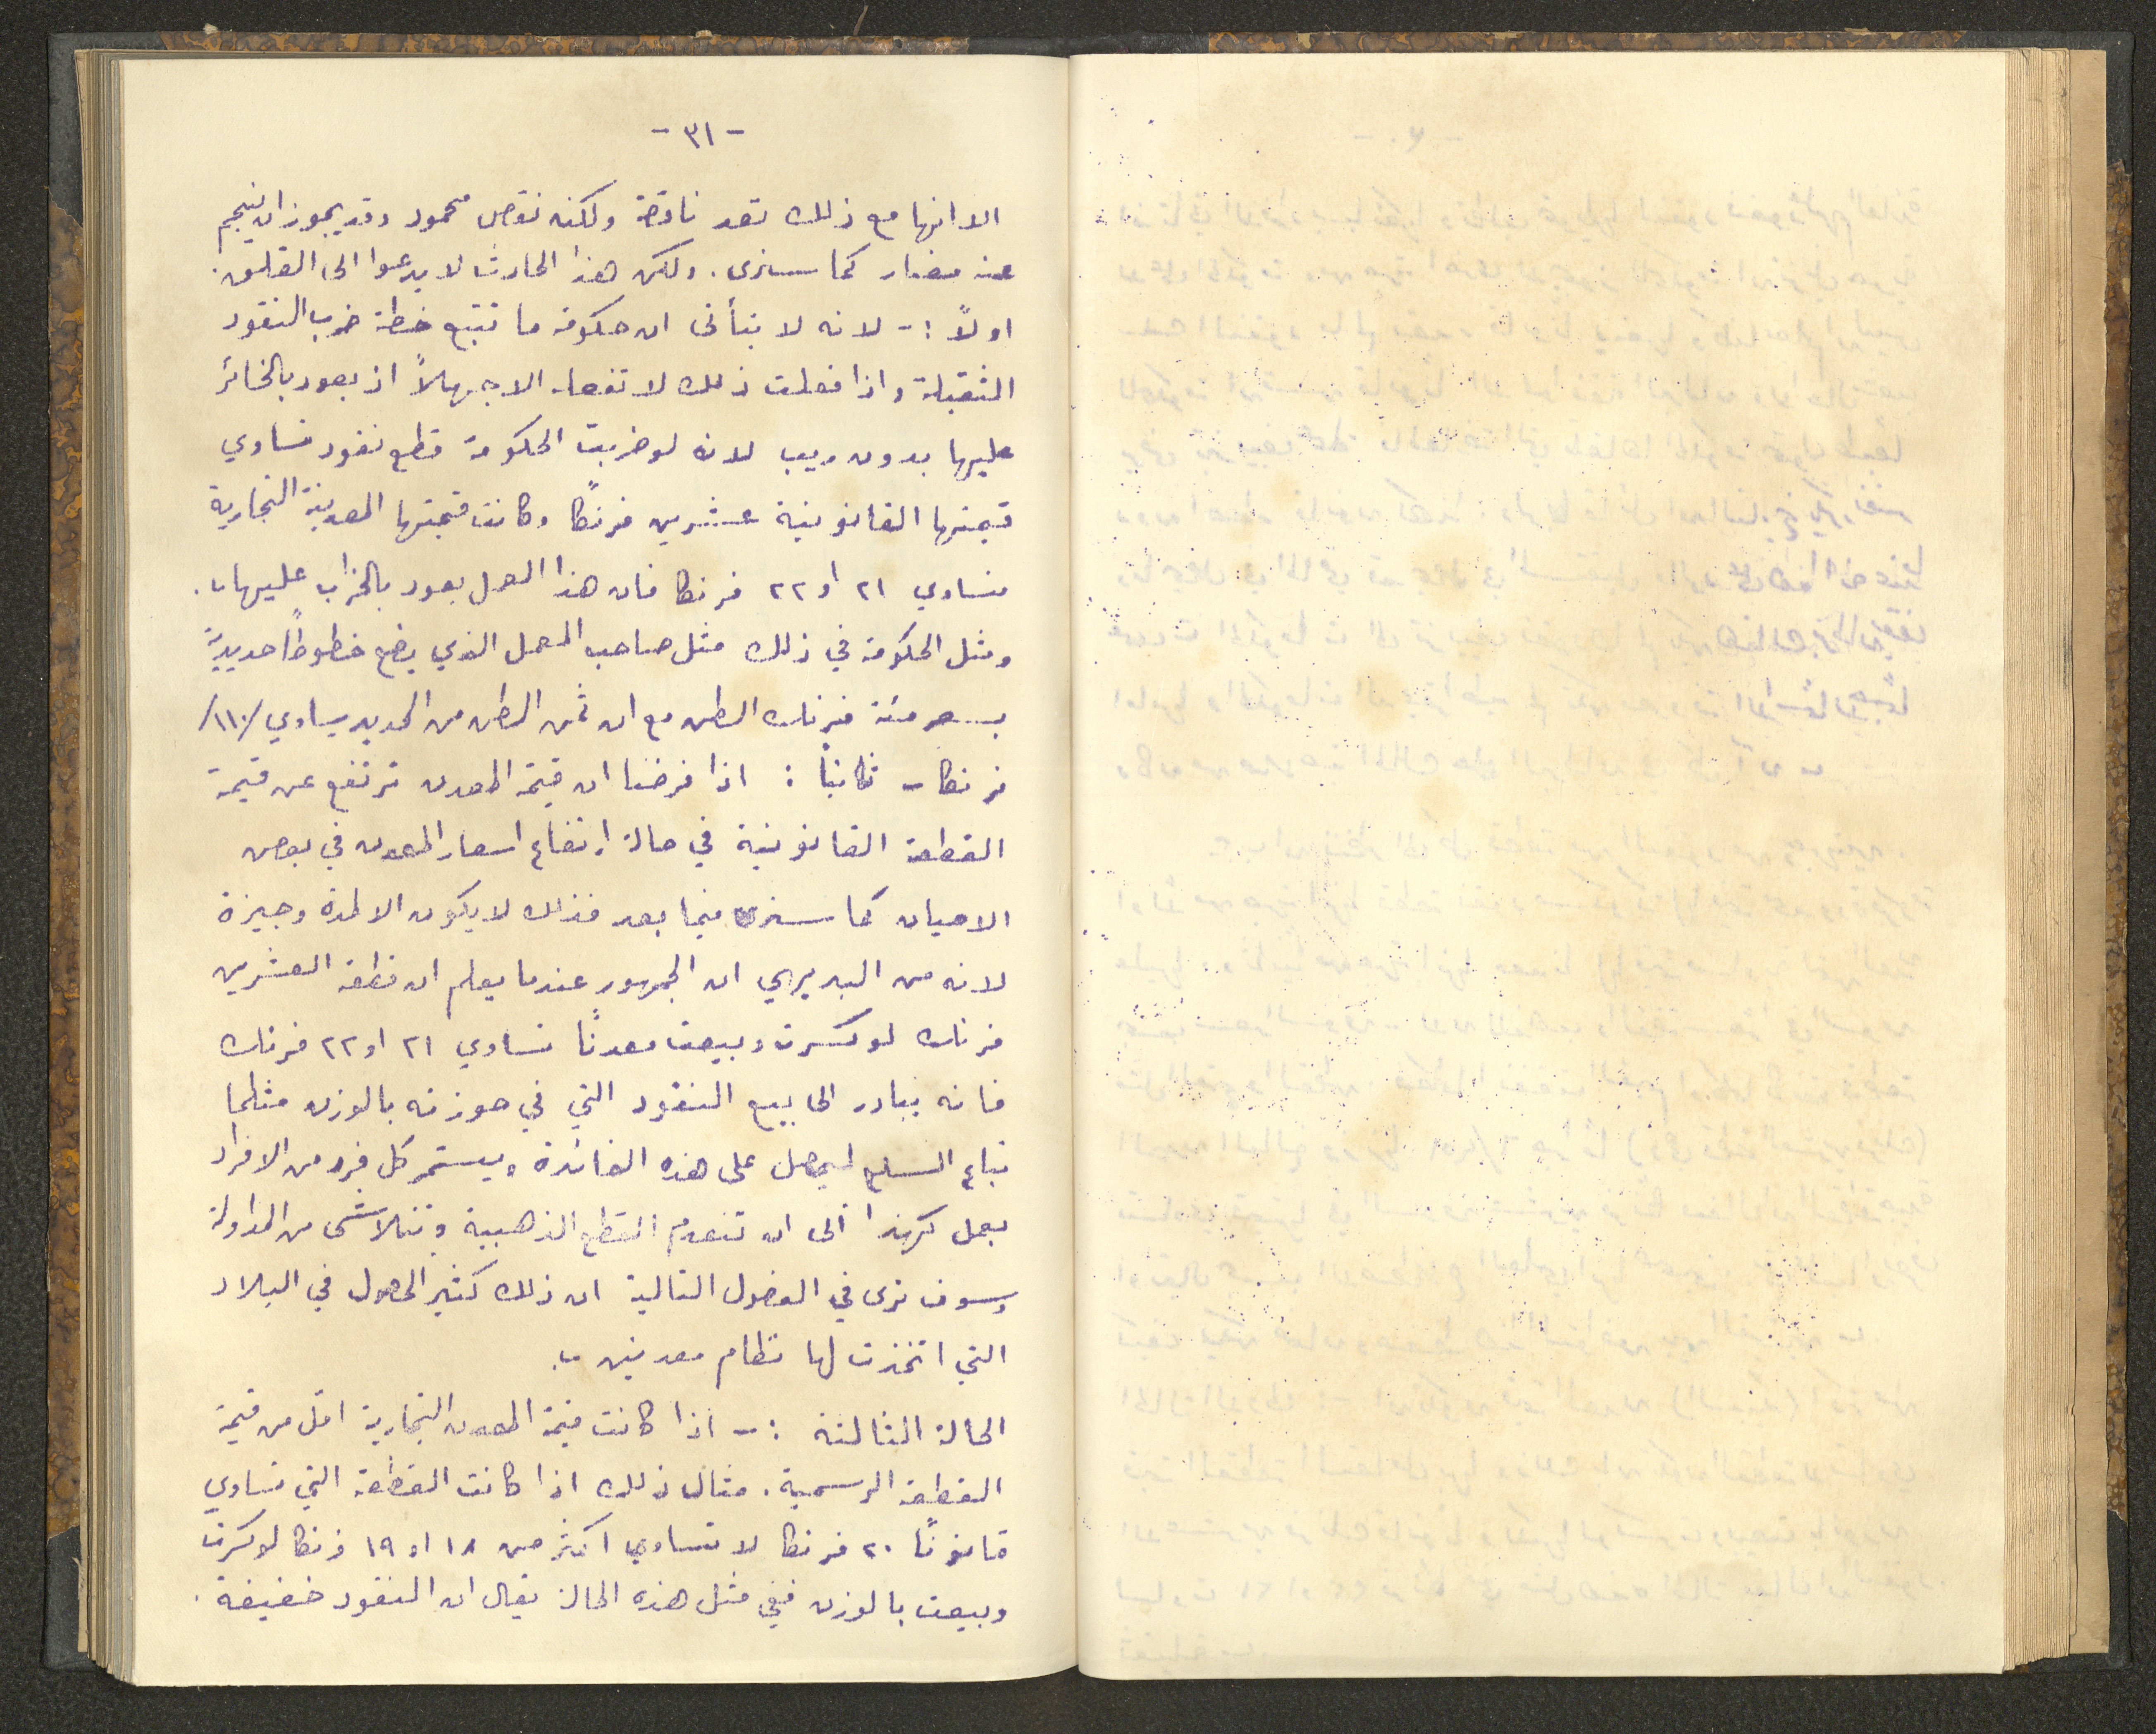 - ٣١ -
الا انها مع ذلك تعد ناقصة ولكنه نقص محمود وقد يجوز ان ينجم
عنه مضار كما سنرى. ولكن هذا الحادث لا يدعوا الى القلق.
اولاً :- لانه لا يتأنى ان حكومة ما تتبع خطة ضرب النقود
الثقيلة واذا فعلت ذلك لا تفعله الا جهلاً اذ يعود بالخسائر
عليها بدون ريب لانه لو ضربت الحكومة قطع نقود تساوي
قيمتها القانونية عشرين فرنكاً وكانت قيمتها المعدنية التجارية
تساوي ٢١ او ٢٢ فرنكا فان هذا العمل يعود بالخراب عليها.
ومثل الحكومة في ذلك مثل صاحب المعمل الذي يضع خطوطاً حديدية
بسعر مئة فرنك الطن مع ان ثمن الطن من الحديد يساوي /١١٠/
فرنكا - ثانياً : اذا فرضنا ان قيمة المعدن ترتفع عن قيمة
القطعة القانونية في حالة ارتفاع اسعار المعدن في بعض
الاحيان كما سنرى فيما بعد فذلك لا يكون الا لمدة وجيزة
لانه من البديهي ان الجمهور عندما يعلم ان قطعة العشرين
فرنك لو كسرت وبيعت معدناً تساوي ٢١ او ٢٢ فرنك
فانه يبادر الى بيع النقود التي في حوزته بالوزن مثلما
تباع السلع ليحصل على هذه الفائدة ويستمر كل فرد من الافراد
بعمل كهذا الى ان تنعدم القطع الذهبية وتتلاشى من المداولة
وسوف نرى في الفصول التالية ان ذلك كثير الحصول في البلاد
التي اتخذت لها نظام معدنين.
الحالة الثالثة :- اذا كانت قيمة المعدن التجارية اقل من قيمة
القطعة الرسمية. مثال ذلك اذا كانت القطعة التي تساوي
قانوناً ٢٠ فرنكا لا تساوي اكثر من ١٨ او ١٩ فرنكا لو كسرت
وبيعت بالوزن ففي مثل هذه الحالة يقال ان النقود خفيفة.